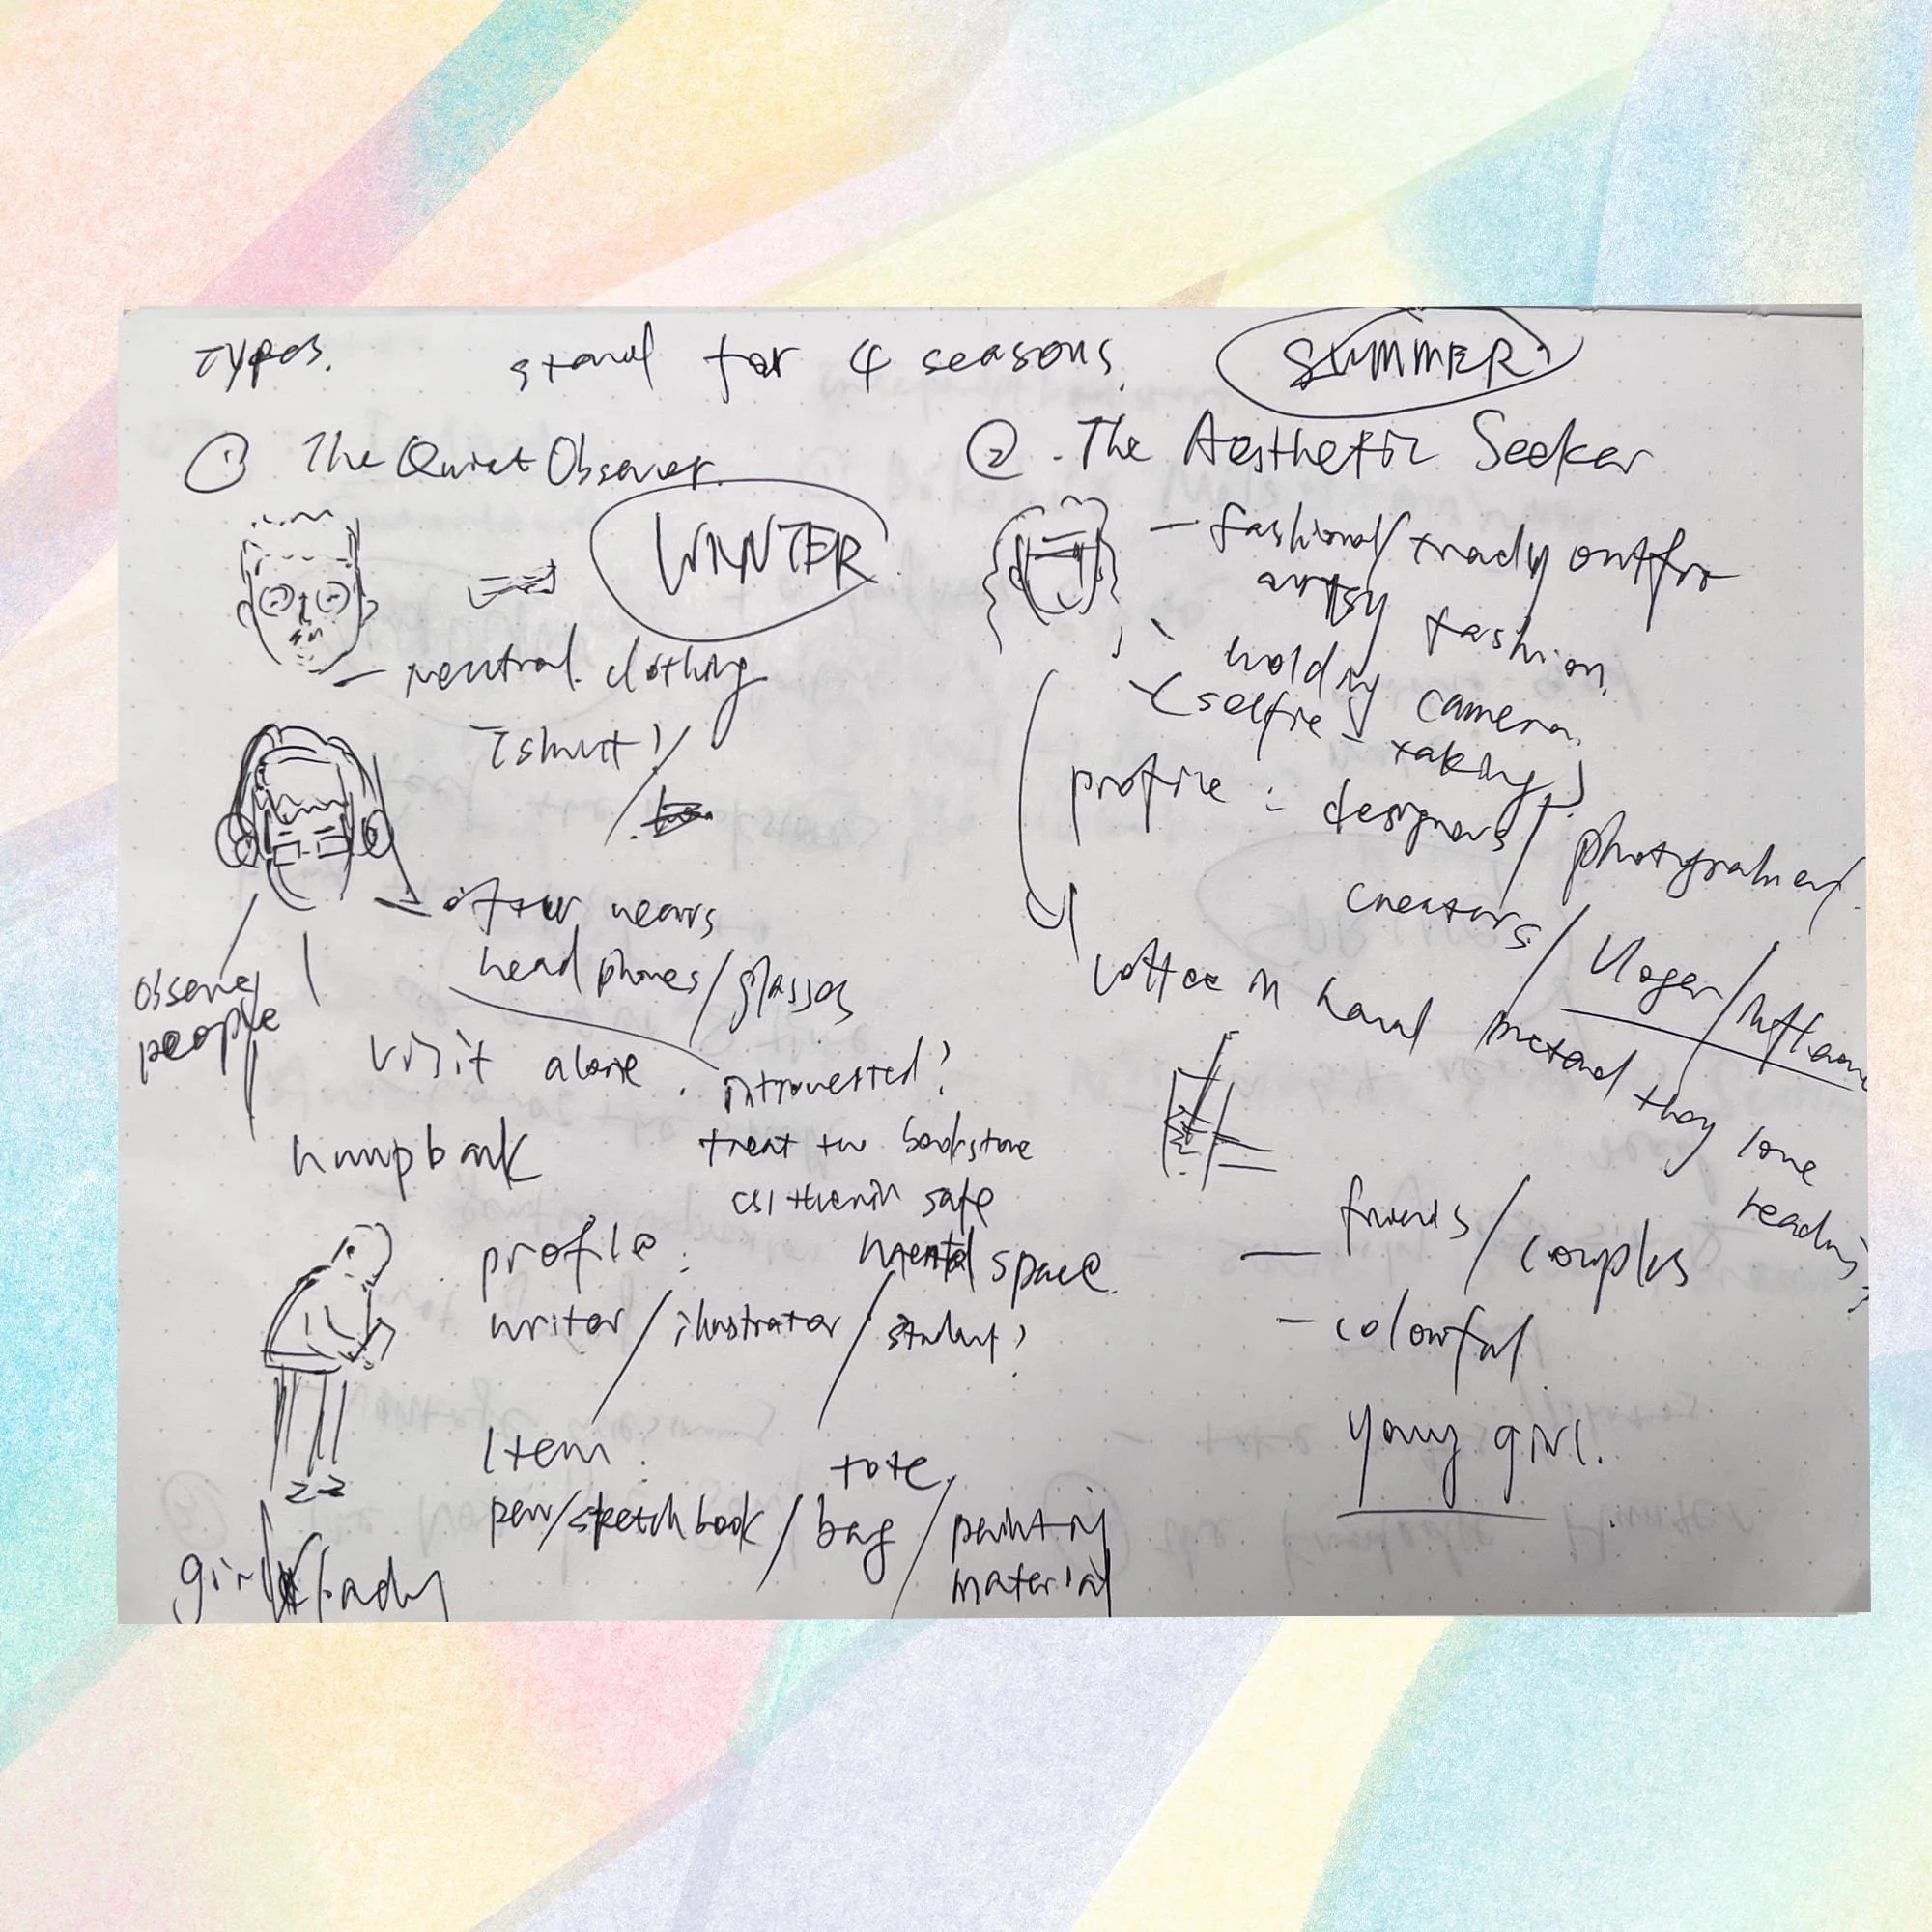 Types. stand for 4 seasons.
① The Quiet Observer.
WINTER
neutral. clothing
Tshirt?/
often wears
head phones/glasses
observe
people
visit alone.
introverted?
humpback
treat the bookstore
as their safe
mental space.
profile:
writer/illustrator/student?
Item:
pen/sketch book/tote bag/painting
material
girl/lady
SUMMER
② The Aesthetic Seeker
- fashional/trady outfit
artsy fashion.
- holding camera.
(selfie-taking)
profile: designers/photographers.
creators/Vloger/Influen
coffee in hand pretend they love
reading?
- friends/couples
- colourful
young girl.